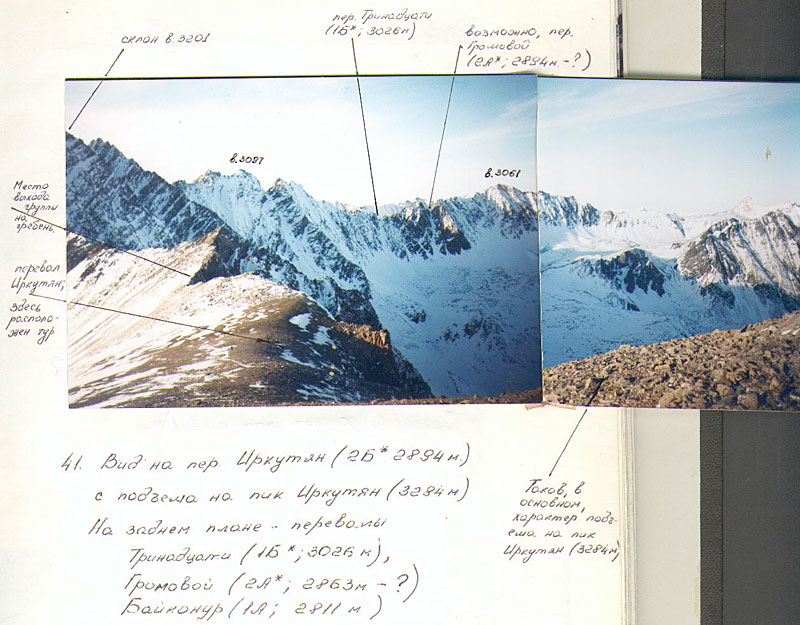 склон в.3201
пер. Тринадцати
(1Б*; 3026м)
возможно, пер.
Громовой
(2А*; 2894м-?)
в.3097
в.3061
Место
выхода
группы
на
гребень
перевал
Иркутян;
здесь
располо-
жен тур
41. Вид на пер. Иркутян (2Б* 2894 м.)
с подъема на пик Иркутян (3284 м)
На заднем плане - перевалы
Тринадцати (1Б*; 3026 м),
Громовой (2А*; 2863м - ?)
Байконур (1А; 2811 м)
Таков, в
основном,
характер подъ-
ема на пик
Иркутян (3284м)